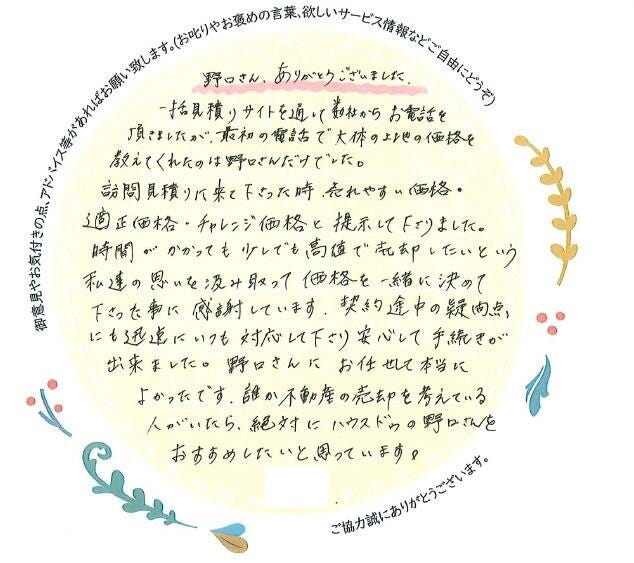 御意見やお気付きの点、アドバイス等があればお願い致します。(お叱りやお褒めの言葉、欲しいサービス情報などご自由にどうぞ)
野口さん、ありがとうございました。
一括見積りサイトを通して数社からお電話を
頂きましたが、最初の電話で大体の土地の価格を
教えてくれたのは野口さんだけでした。
訪問見積りに来て下さった時、売れやすい価格・
適正価格・チャレンジ価格と提示して下さりました。
時間がかかっても少しでも高値で売却したいという
私達の思いを汲み取って価格を一緒に決めて
下さった事に感謝しています。契約途中の疑問点
にも迅速にいつも対応して下さり安心して手続きが
出来ました。野口さんにお任せして本当に
よかったです。誰か不動産の売却を考えている
人がいたら、絶対にハウスドゥの野口さんを
おすすめしたいと思っています。
ご協力誠にありがとうございます。